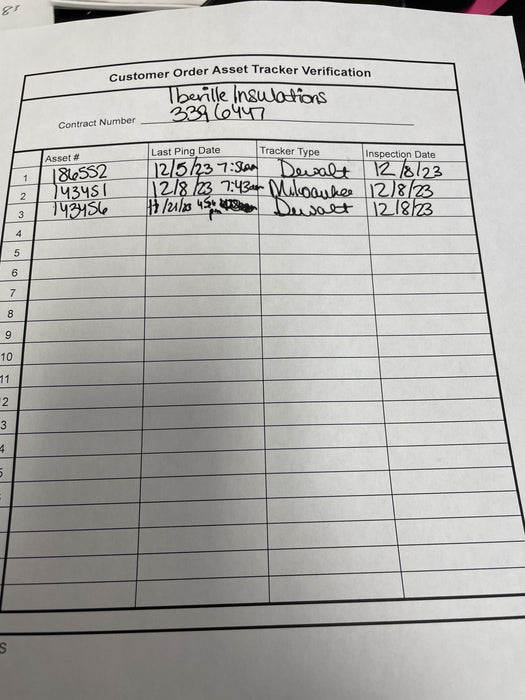 83
Customer Order Asset Tracker Verification
Iberille Insulations
Contract Number 3396447
Asset # Last Ping Date Tracker Type Inspection Date
1 186552 12/5/23 7:56am Dewalt 12/8/23
2 143451 12/8/23 7:43am Milwaukee 12/8/23
3 143456 11/21/23 4:54 pm Dewalt 12/8/23
4
5
6
7
8
9
10
11
2
3
4
5
S